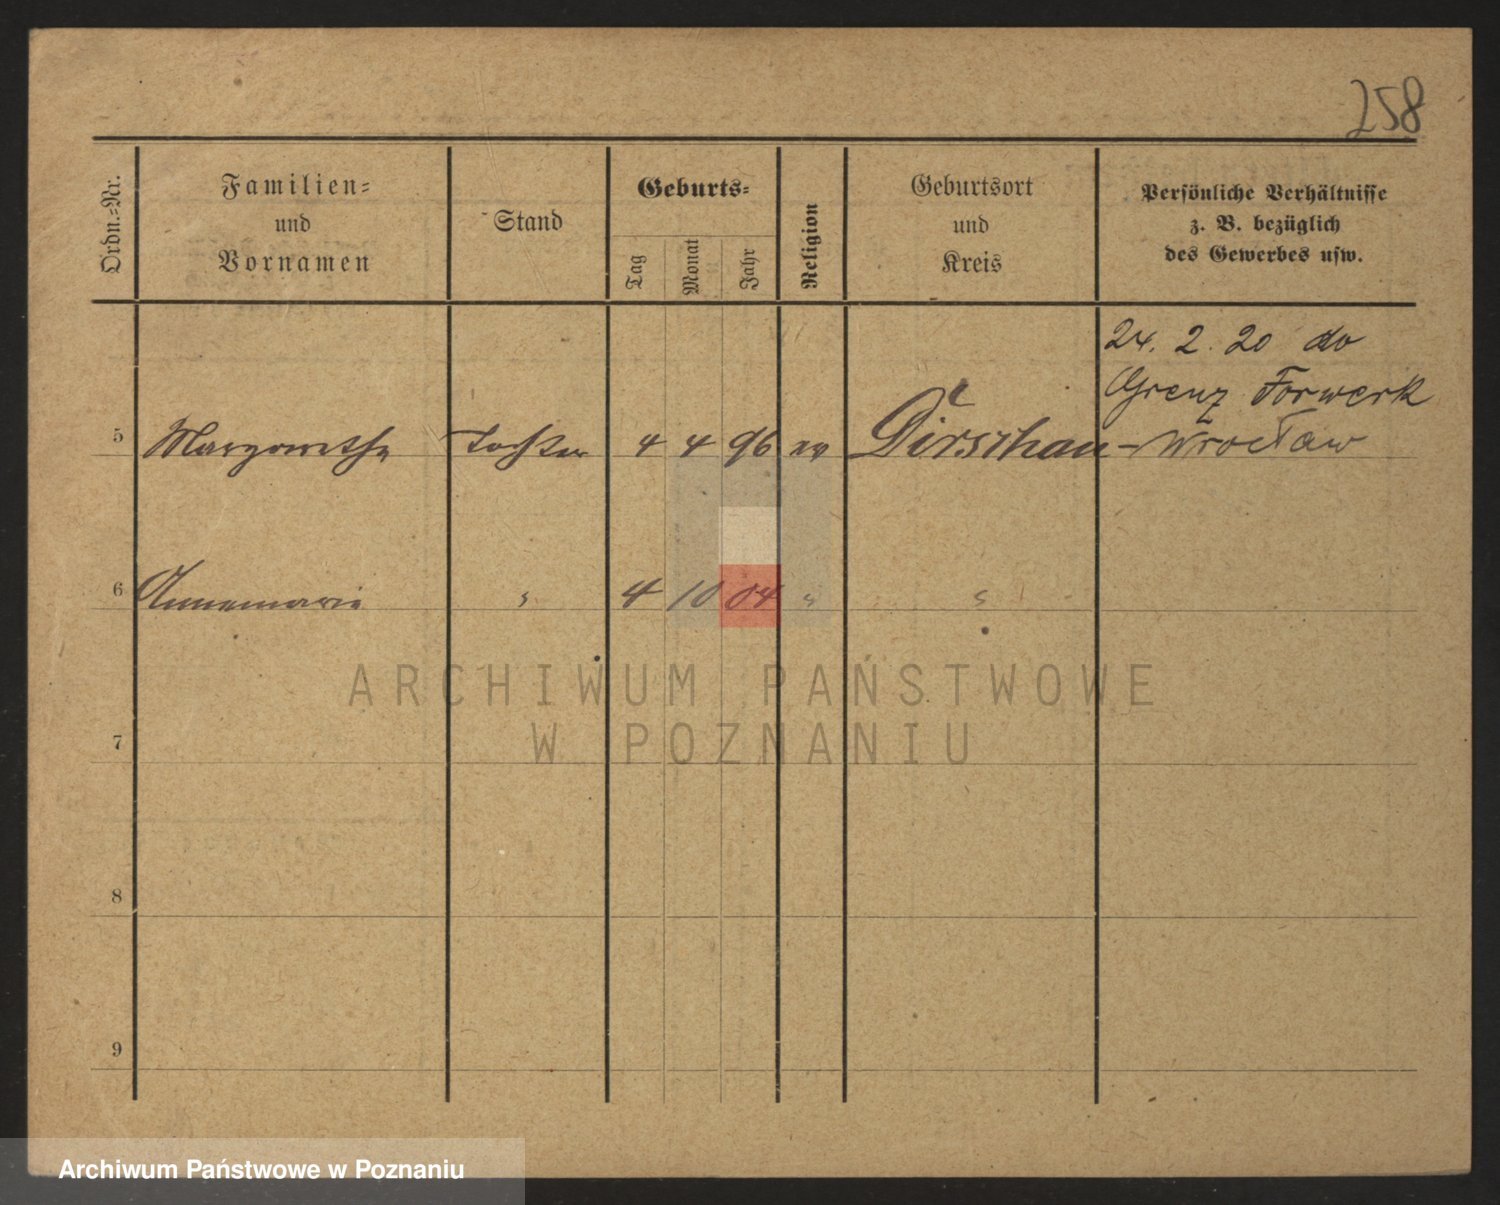 258
Ordn.=Nr.
Familien=
und
Vornamen
Stand
Geburts=
Tag
Monat
Jahr
Religion
Geburtsort
und
Kreis
Persönliche Verhältnisse
z. B. bezüglich
des Gewerbes usw.
24. 2. 20 do
Grenz Forwerk
5 Margarethe Tochter 4 4 96 ev Dirschau - Wrocław
6 Annemarie " 4 10 04 " "
7
8
9
ARCHIWUM PAŃSTWOWE
W POZNANIU
Archiwum Państwowe w Poznaniu